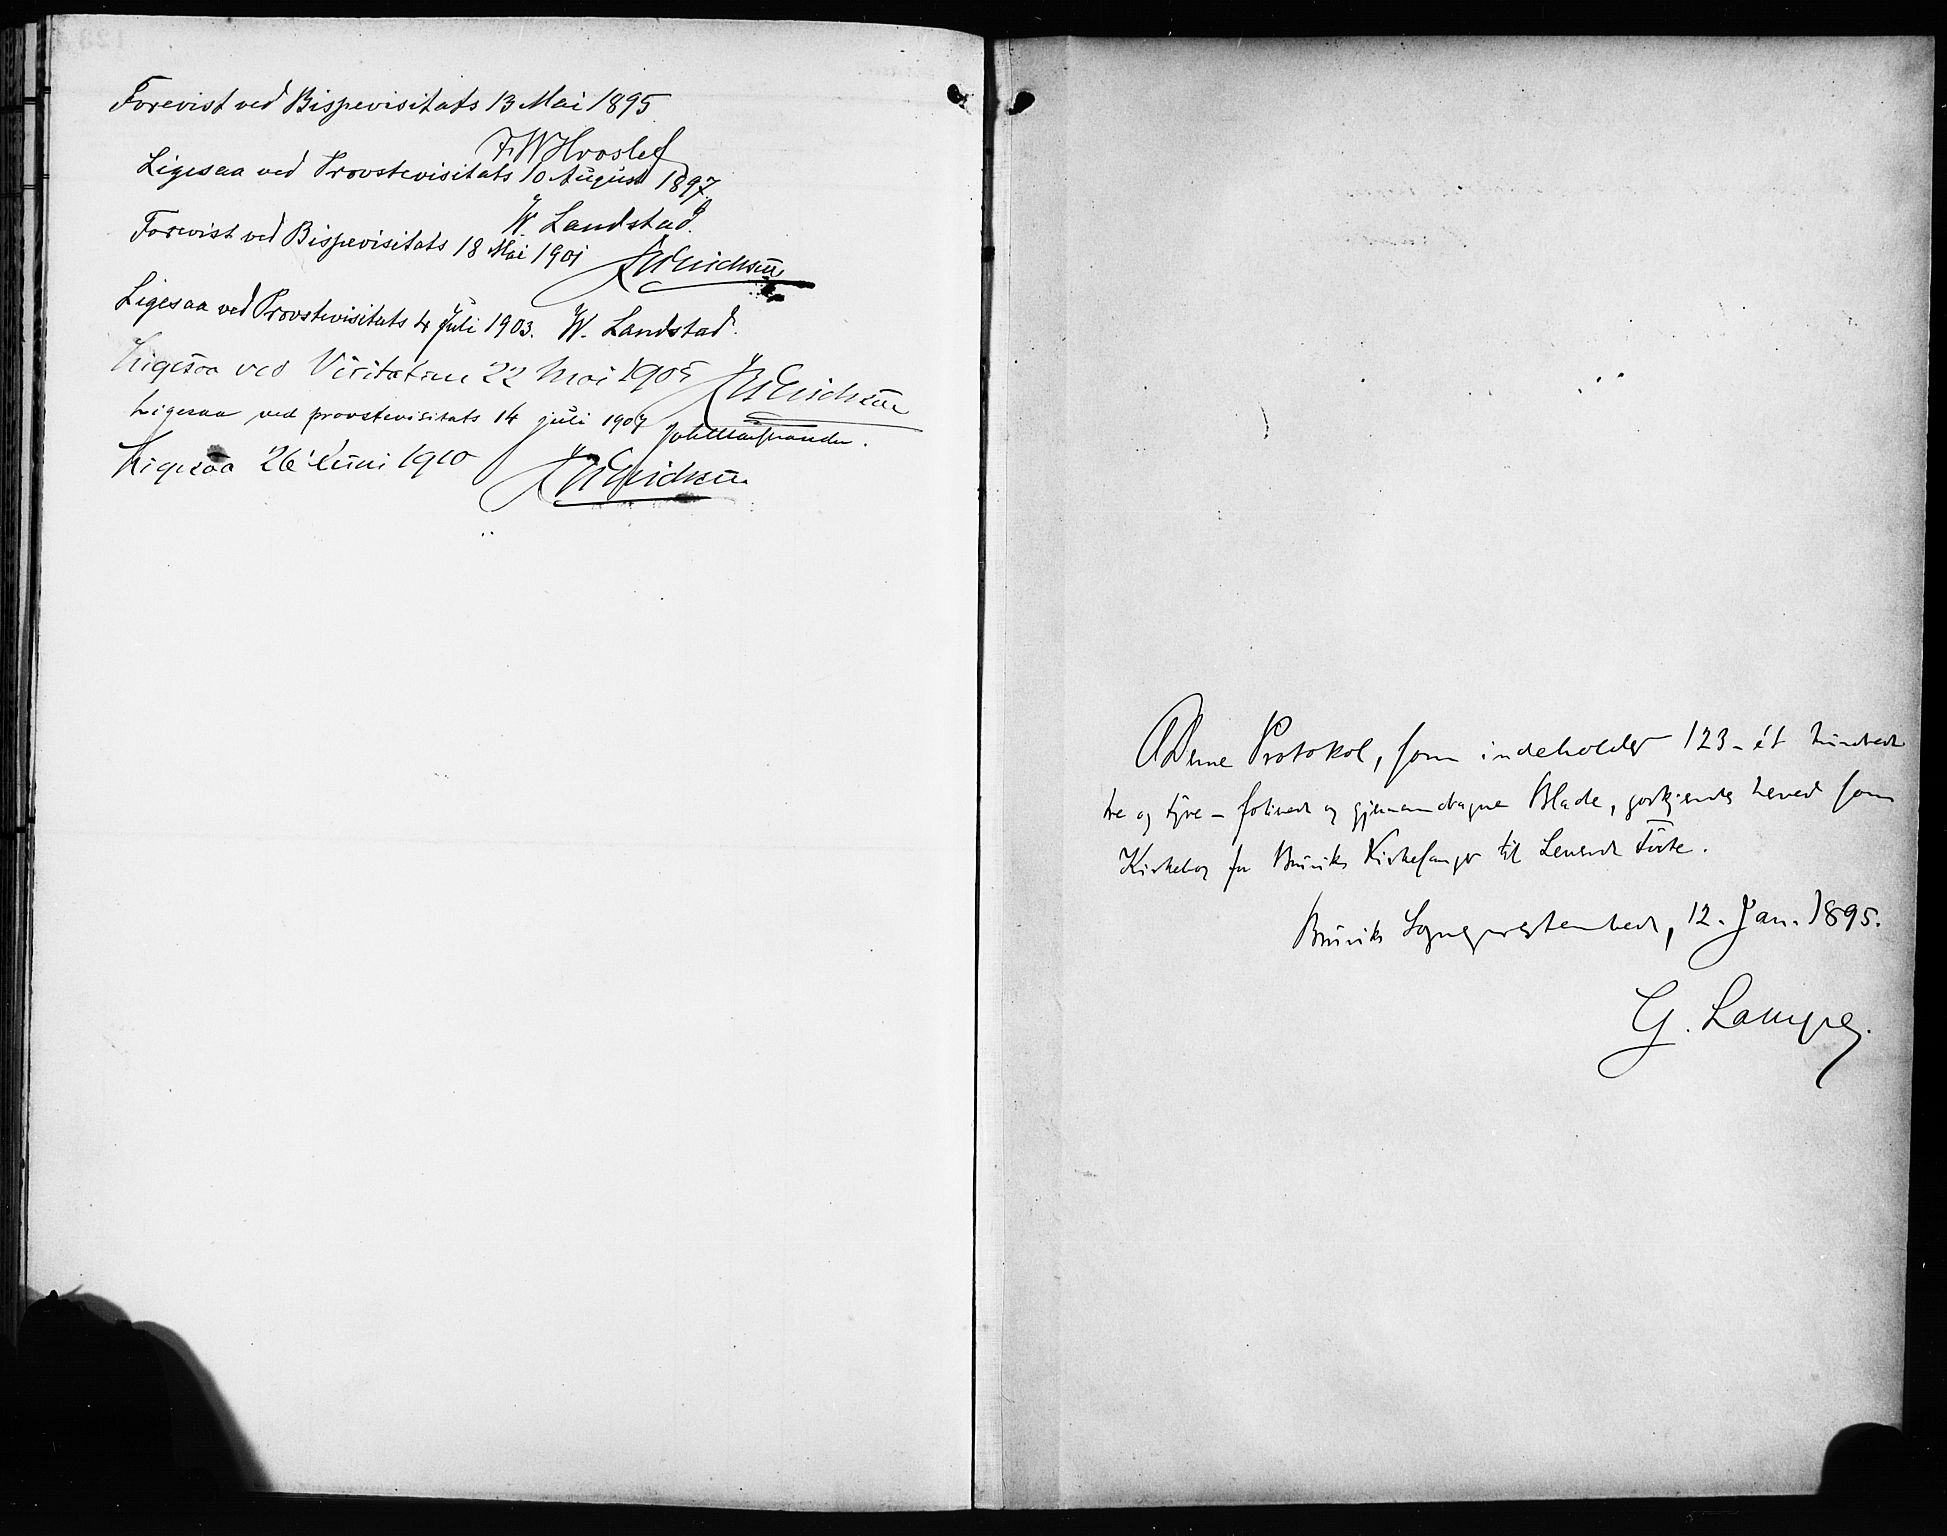 Forevist ved Bispevisitats 13 Mai 1895
F. W. Hvoslef
Ligesaa ved Provstevisitats 10 August 1897
W. Landstad.
Forevist ved Bispevisitats 18 Mai 1901
Ligesaa ved Provstevisitats 4 Juli 1903. W. Landstad.
Ligesaa ved Visitatsen 22 Mai 1905
Ligesaa ved provstevisitats 14 juli 1907
Ligesaa 26 Juni 1910
Denne Protokol, som indeholder 123 - ét hundrede
tre og tyve - folierede og gjennemdragne Blade, godkjendes herved som
Kirkebog for Bruviks Kirkesanger til Levende Førte.
Bruviks Sognepresteembede, 12. Jan. 1895.
G. Lampe.